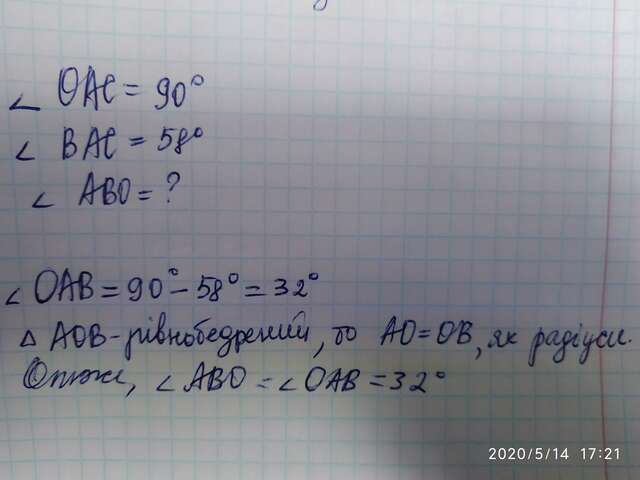 ∠ OAC = 90°
∠ BAC = 58°
∠ ABO = ?
∠ OAB = 90° - 58° = 32°
Δ AOB - рівнобедрений, бо AO = OB, як радіуси.
Отже, ∠ ABO = ∠ OAB = 32°
2020/5/14 17:21